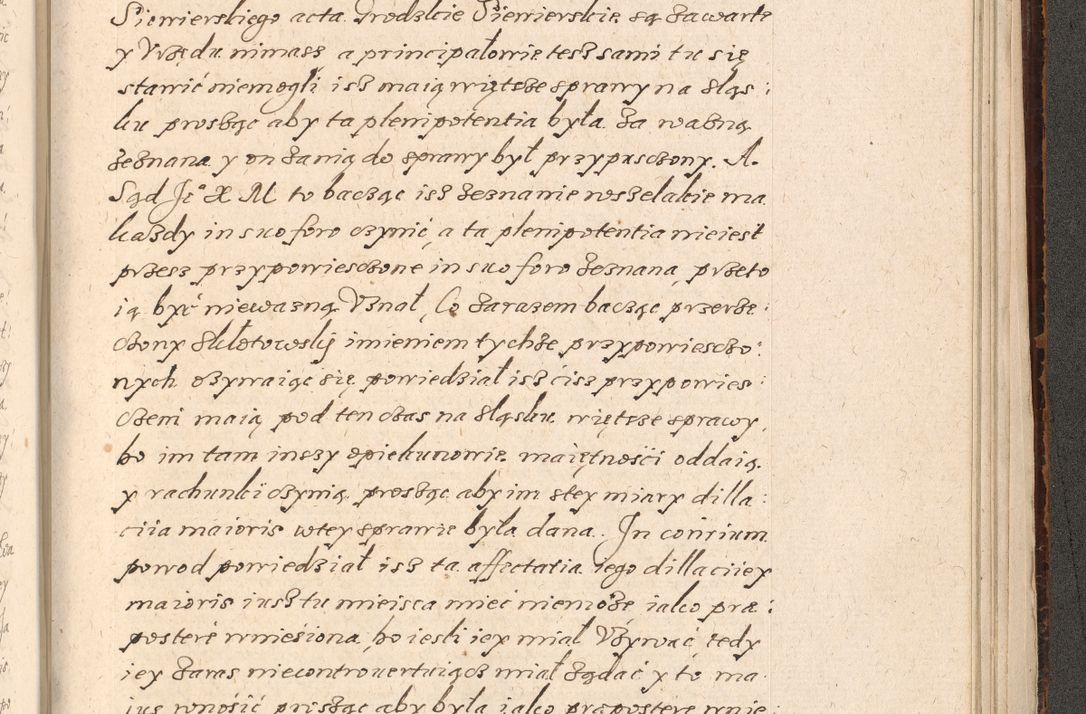 Siewierskiego acta Grodzkie Siewierskie są zawarte
y Vrzędu nimasz, a principałowie tesz sami tu się
stawić niemogli isz maią więtsze sprawy na Sląs:
ku prosząc aby ta plenipotentia była za ważną
zeznana y on zanią do sprawy był przypusczony. A.
Sąd Je° X M to bacząc isz zeznanie wszelakie ma
każdy in suo foro czynić, a ta plenipotentia nieiest
przesz przypowiesczone in suo foro zeznana, przeto
ią być nieważną Vznał, Co zarazem bacząc przerze:
czony Skłotowskij imieniem tychże przypowiesczo:
nych ozywaiąc się powiedział isz cisz przypowies:
czeni maią pod ten czas na sląsku więtsze sprawy,
bo im tam inszy opiekunowie maiętności oddaią
y rachunki czynią prosząc aby im stey miary dilla:
ciia maioris wtey sprawie była dana. In conrium
powod powiedział isz ta affectatia iego dillaciiey
maioris iusz tu mieisca mieć niemoże iako præ:
postere wnieśiona, bo iesli iey miał Vżywać, tedy
iey zaras niecontrouertuiącz miał żądać y to ma
ius wnośić prisząc aby była iako præpostere wnie: